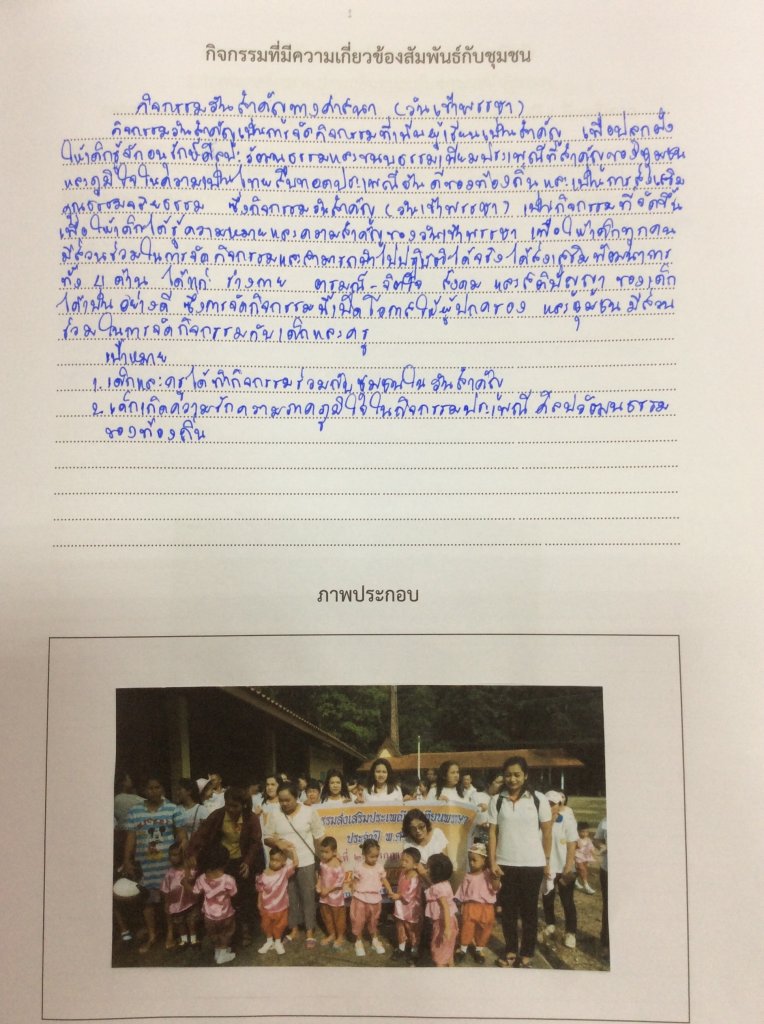 กิจกรรมที่มีความเกี่ยวข้องสัมพันธ์กับชุมชน
กิจกรรมวันสำคัญทางศาสนา (วันเข้าพรรษา)
กิจกรรมวันสำคัญเป็นการจัดกิจกรรมที่เน้นผู้เรียนเป็นสำคัญ เพื่อปลูกฝัง
ให้เด็กรู้จักอนุรักษ์ศิลปะวัฒนธรรมและขนบธรรมเนียมประเพณีที่สำคัญของชุมชน
และภูมิใจในความเป็นไทยสืบทอดประเพณีอันดีของท้องถิ่น และเป็นการส่งเสริม
คุณธรรมจริยธรรม ซึ่งกิจกรรมวันสำคัญ (วันเข้าพรรษา) เป็นกิจกรรมที่จัดขึ้น
เพื่อให้เด็กได้รู้ความหมายและความสำคัญของวันเข้าพรรษา เพื่อให้เด็กทุกคน
มีส่วนร่วมในการจัดกิจกรรมและสามารถนำไปปฏิบัติได้จริงได้ส่งเสริมพัฒนาการ
ทั้ง 4 ด้าน ได้แก่ ร่างกาย อารมณ์-จิตใจ สังคม และสติปัญญา ของเด็ก
ได้เป็นอย่างดี ซึ่งการจัดกิจกรรมนี้เปิดโอกาสให้ผู้ปกครอง และชุมชนมีส่วน
ร่วมในการจัดกิจกรรมกับเด็กและครู
เป้าหมาย
1. เด็กและครูได้ทำกิจกรรมร่วมกับชุมชนในวันสำคัญ
2. เด็กเกิดความรักความภาคภูมิใจในกิจกรรมประเพณี ศิลปวัฒนธรรม
ของท้องถิ่น
ภาพประกอบ
รรมส่งเสริมประเพณี เทียนพรรษา
ประจำปี พ.ศ.